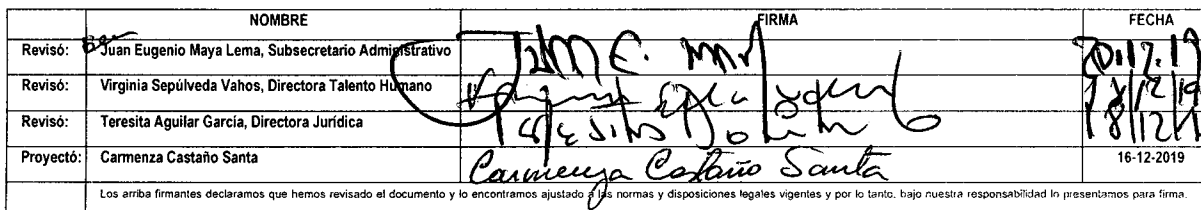 NOMBRE FIRMA FECHA
Revisó: Juan Eugenio Maya Lema, Subsecretario Administrativo 20.12.19
Revisó: Virginia Sepúlveda Vahos, Directora Talento Humano
Revisó: Teresita Aguilar García, Directora Jurídica 18/12/19
Proyectó: Carmenza Castaño Santa Carmenza Castaño Santa 16-12-2019
Los arriba firmantes declaramos que hemos revisado el documento y lo encontramos ajustado a las normas y disposiciones legales vigentes y por lo tanto, bajo nuestra responsabilidad lo presentamos para firma.